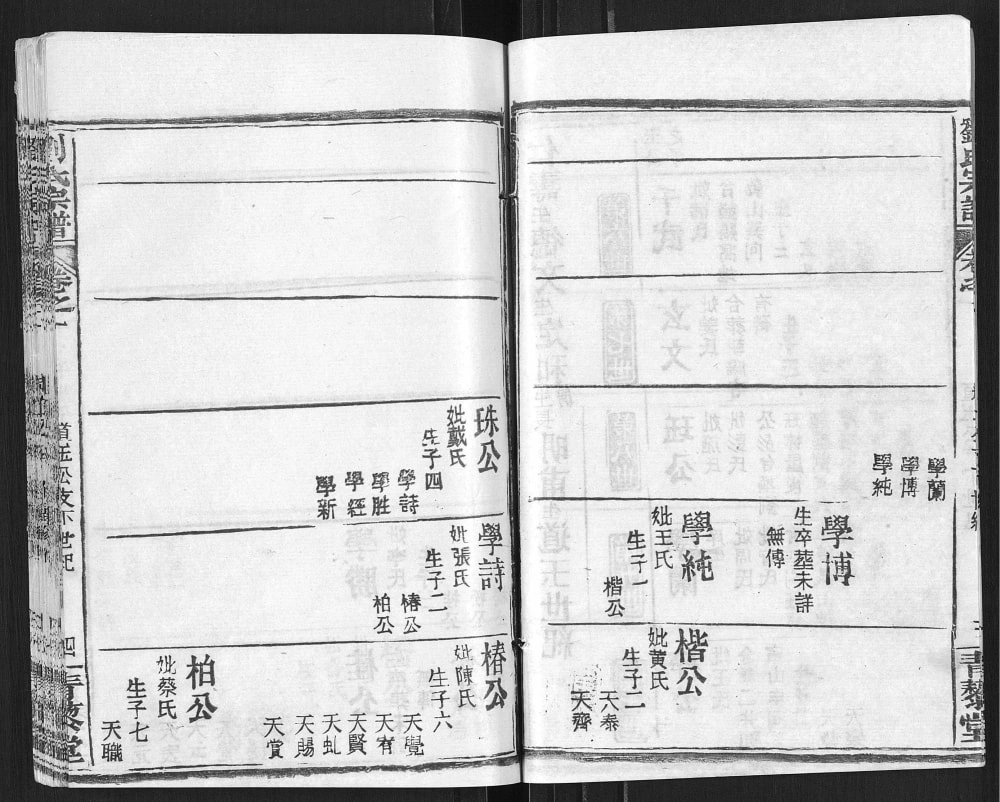 劉氏宗譜
卷之
青藜堂
學蘭
學博
學純
學博
生卒塟未詳
無傳
學純
妣王氏
生子一
楷公
楷公
妣黄氏
生子二
天泰
天齊
珠公
妣戴氏
生子四
學詩
學勝
學經
學新
學詩
妣張氏
生子二
椿公
柏公
椿公
妣陳氏
生子六
天覺
天宥
天賢
天虬
天賜
天賞
柏公
妣蔡氏
生子七
天職
劉氏宗譜
卷之
世紀
四
青藜堂